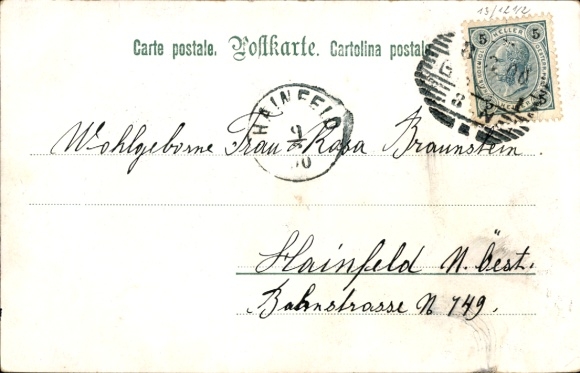 13/12 1/2
Carte postale. Postkarte. Cartolina postale
5 HELLER 5
5 5
HAINFELD
9
00
Wohlgeborne Frau Rosa Braunstein.
Hainfeld N. Öest.
Bahnstrasse N 149.